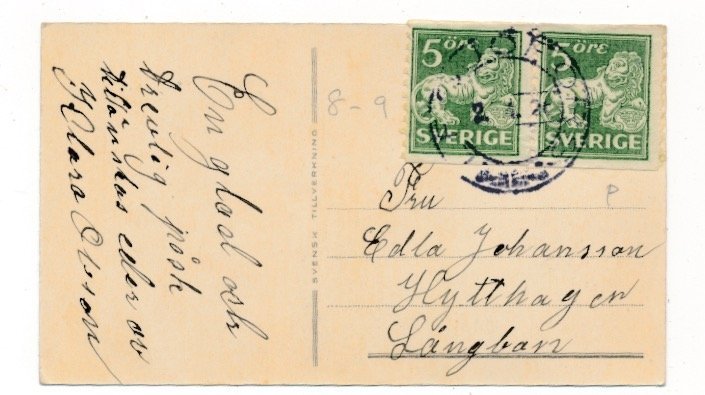 En glad och
trevlig påsk
tillönskas eder av
Klara Olsson
SVENSK TILLVERKNING
8-9
5 öre
SVERIGE
5 öre
SVERIGE
P
Fru
Edla Johansson
Hytthagen
Långban